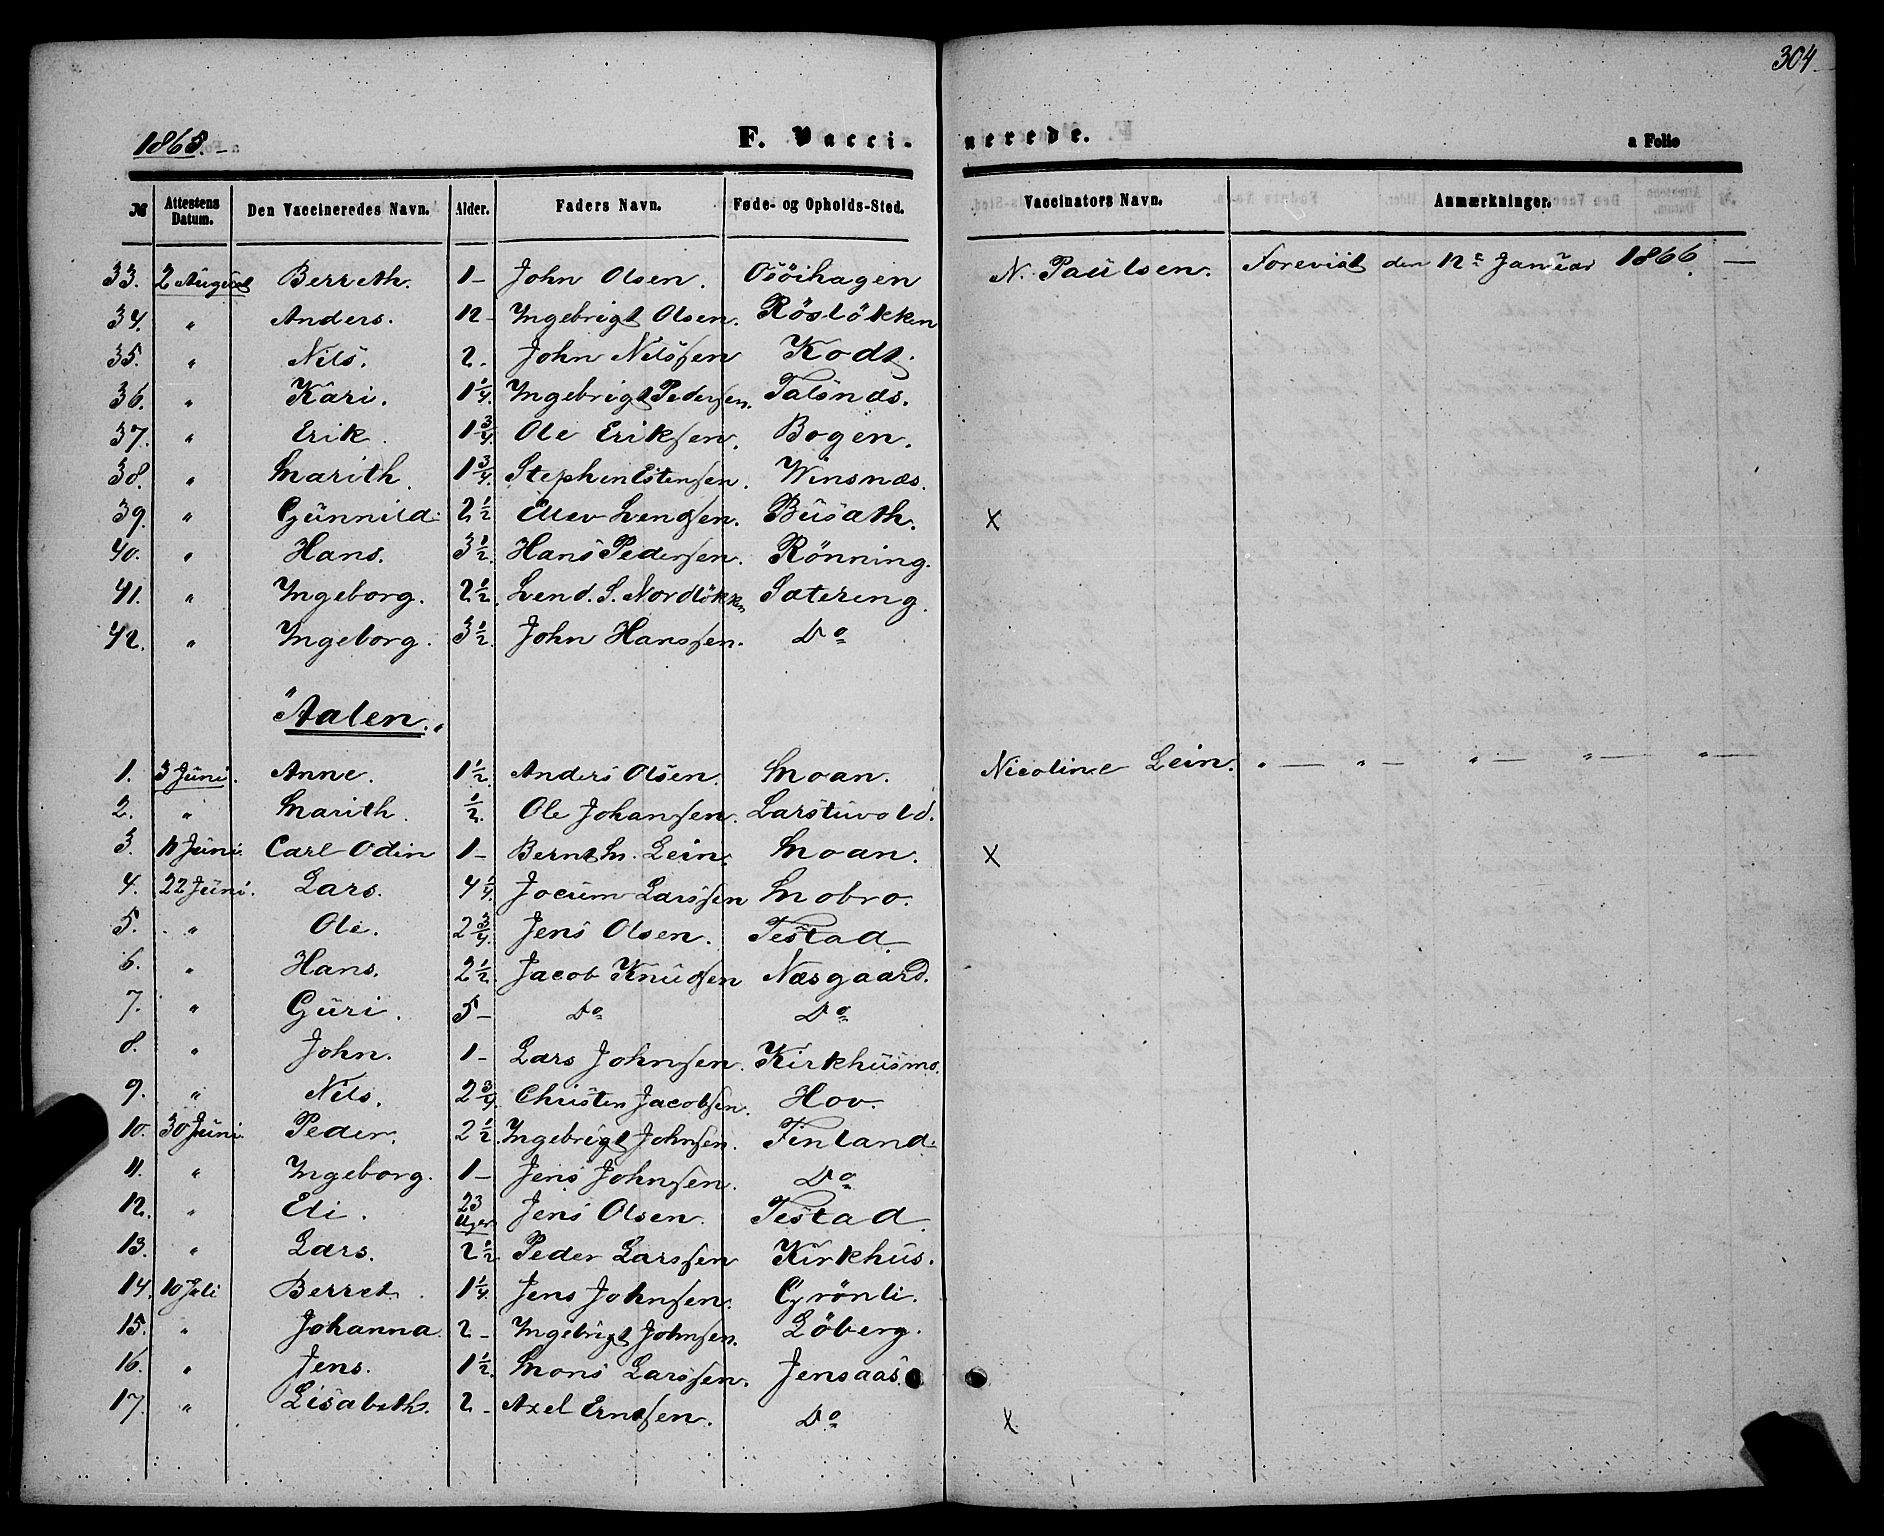 304
1865.
F. Vaccinerede.
a Folio
№ Attestens Datum. Den Vaccineredes Navn. Alder. Faders Navn. Føde- og Opholds-Sted. Vaccinators Navn. Anmærkninger.
33. 2 August Berreth. 1- John Olsen. Osöihagen N. Paulsen. Forevist den 12te Januar 1866. —
34. " Anders. 12- Ingebrigt Olsen. Röslökken
35. " Nils. 2. John Nilssen Kodt.
36. " Kari. 1 1/4 Ingebrigt Pedersen. Talsnæs.
37. " Erik. 1 3/4. Ole Eriksen. Bogen.
38. " Marith. 1 3/4. Stephen Estensen. Winsnæs.
39. " Gunnild. 2 1/2 Ellev Lendsen. Busæth. x
40. " Hans. 3 1/2. Hans Pedersen. Rönning.
41. " Ingeborg. 2 1/2. Lend. S. Nordlökken Sætering.
42. " Ingeborg. 3 1/2. John Hanssen. Do
"Aalen."
1. 3 Juni. Anne. 1 1/2. Anders Olsen. Moan. Nicoline Lein. " — " — " — " — " —
2. " Marith. 1/2. Ole Johansen. Larstuvold.
3. 11 Juni. Carl Odin 1- Bernt M. Lein. Moan. x
4. 22 Juni. Lars. 4 1/4. Jocum Larssen Mobro.
5. " Ole. 2 3/4. Jens Olsen. Testad.
6. " Hans. 2 1/2. Jacob Knudsen Næsgaard.
7. " Guri. 5- Do Do
8. " John. 1- Lars Johnsen. Kirkhusmo.
9. " Nils. 2 3/4. Christen Jacobsen. Hov.
10. 30 Juni. Peder. 2 1/2. Ingebrigt Johnsen. Finland.
11. " Ingeborg. 1- Jens Johnsen. Do
12. " Eli. 23 Uger Jens Olsen. Testad.
13. " Lars. 2 1/2 Peder Larssen Kirkhus.
14. 10 Juli Berret. 1 1/4. Jens Johnsen. Grönli.
15. " Johanna. 2- Ingebrigt Johnsen. Löberg.
16. " Jens. 1 1/2. Mons Larssen. Jensaas.
17. " Lisabeth. 2- Axel Erntsen. Do x